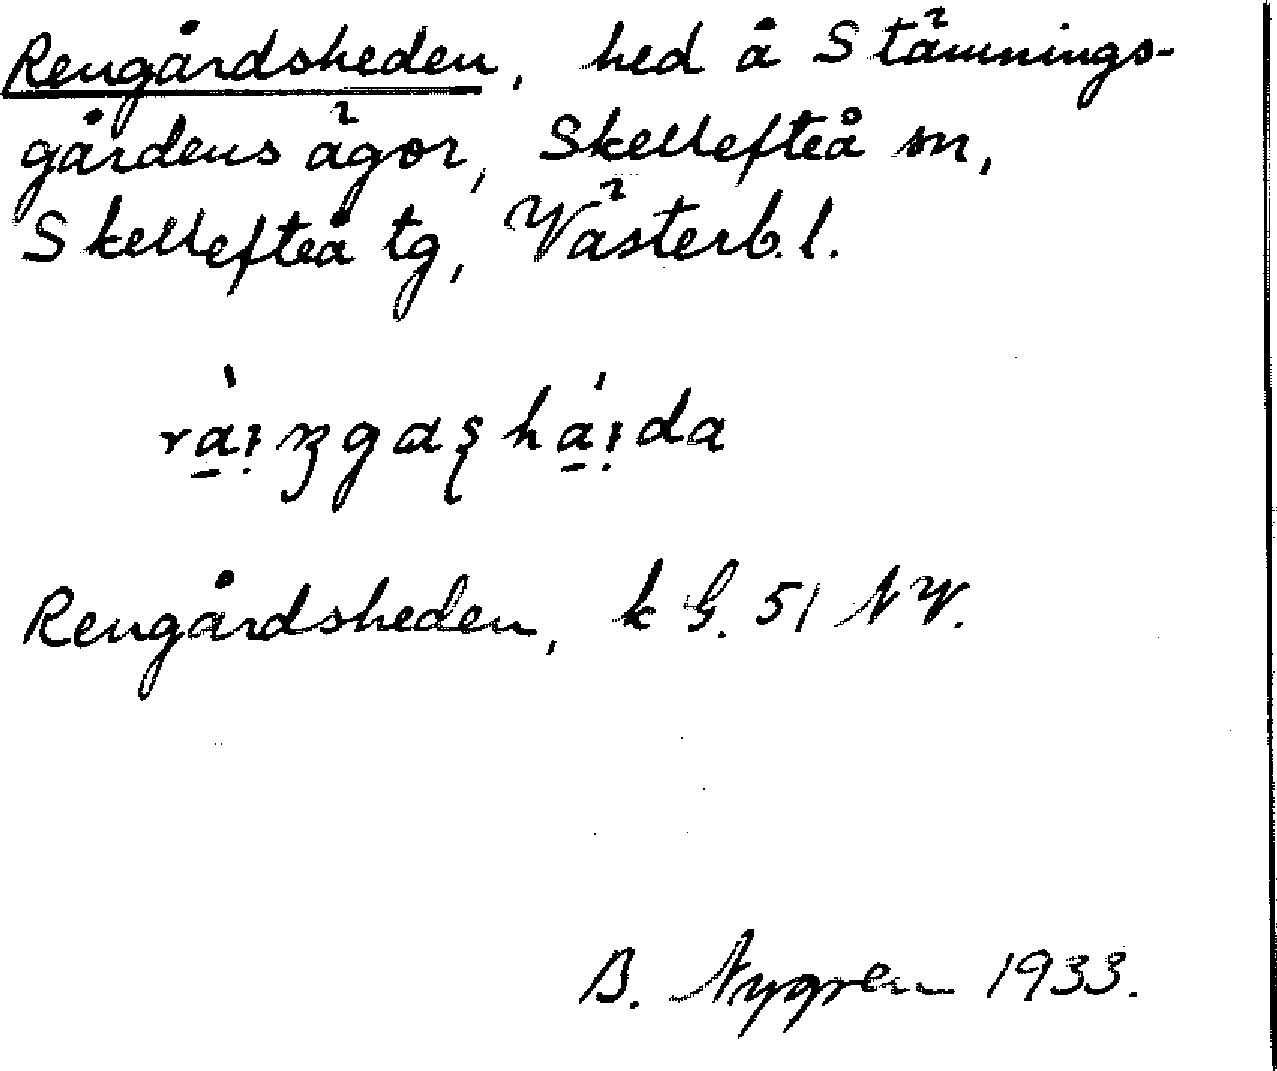 Rengårdsheden, hed å Stämnings-
gårdens ägor, Skellefteå sn,
Skellefteå tg, Västerb. l.
rà̠i̩ŋgaʂhá̠i̩da
Rengårdsheden, k G. 51 NV.
B. Nygren 1933.